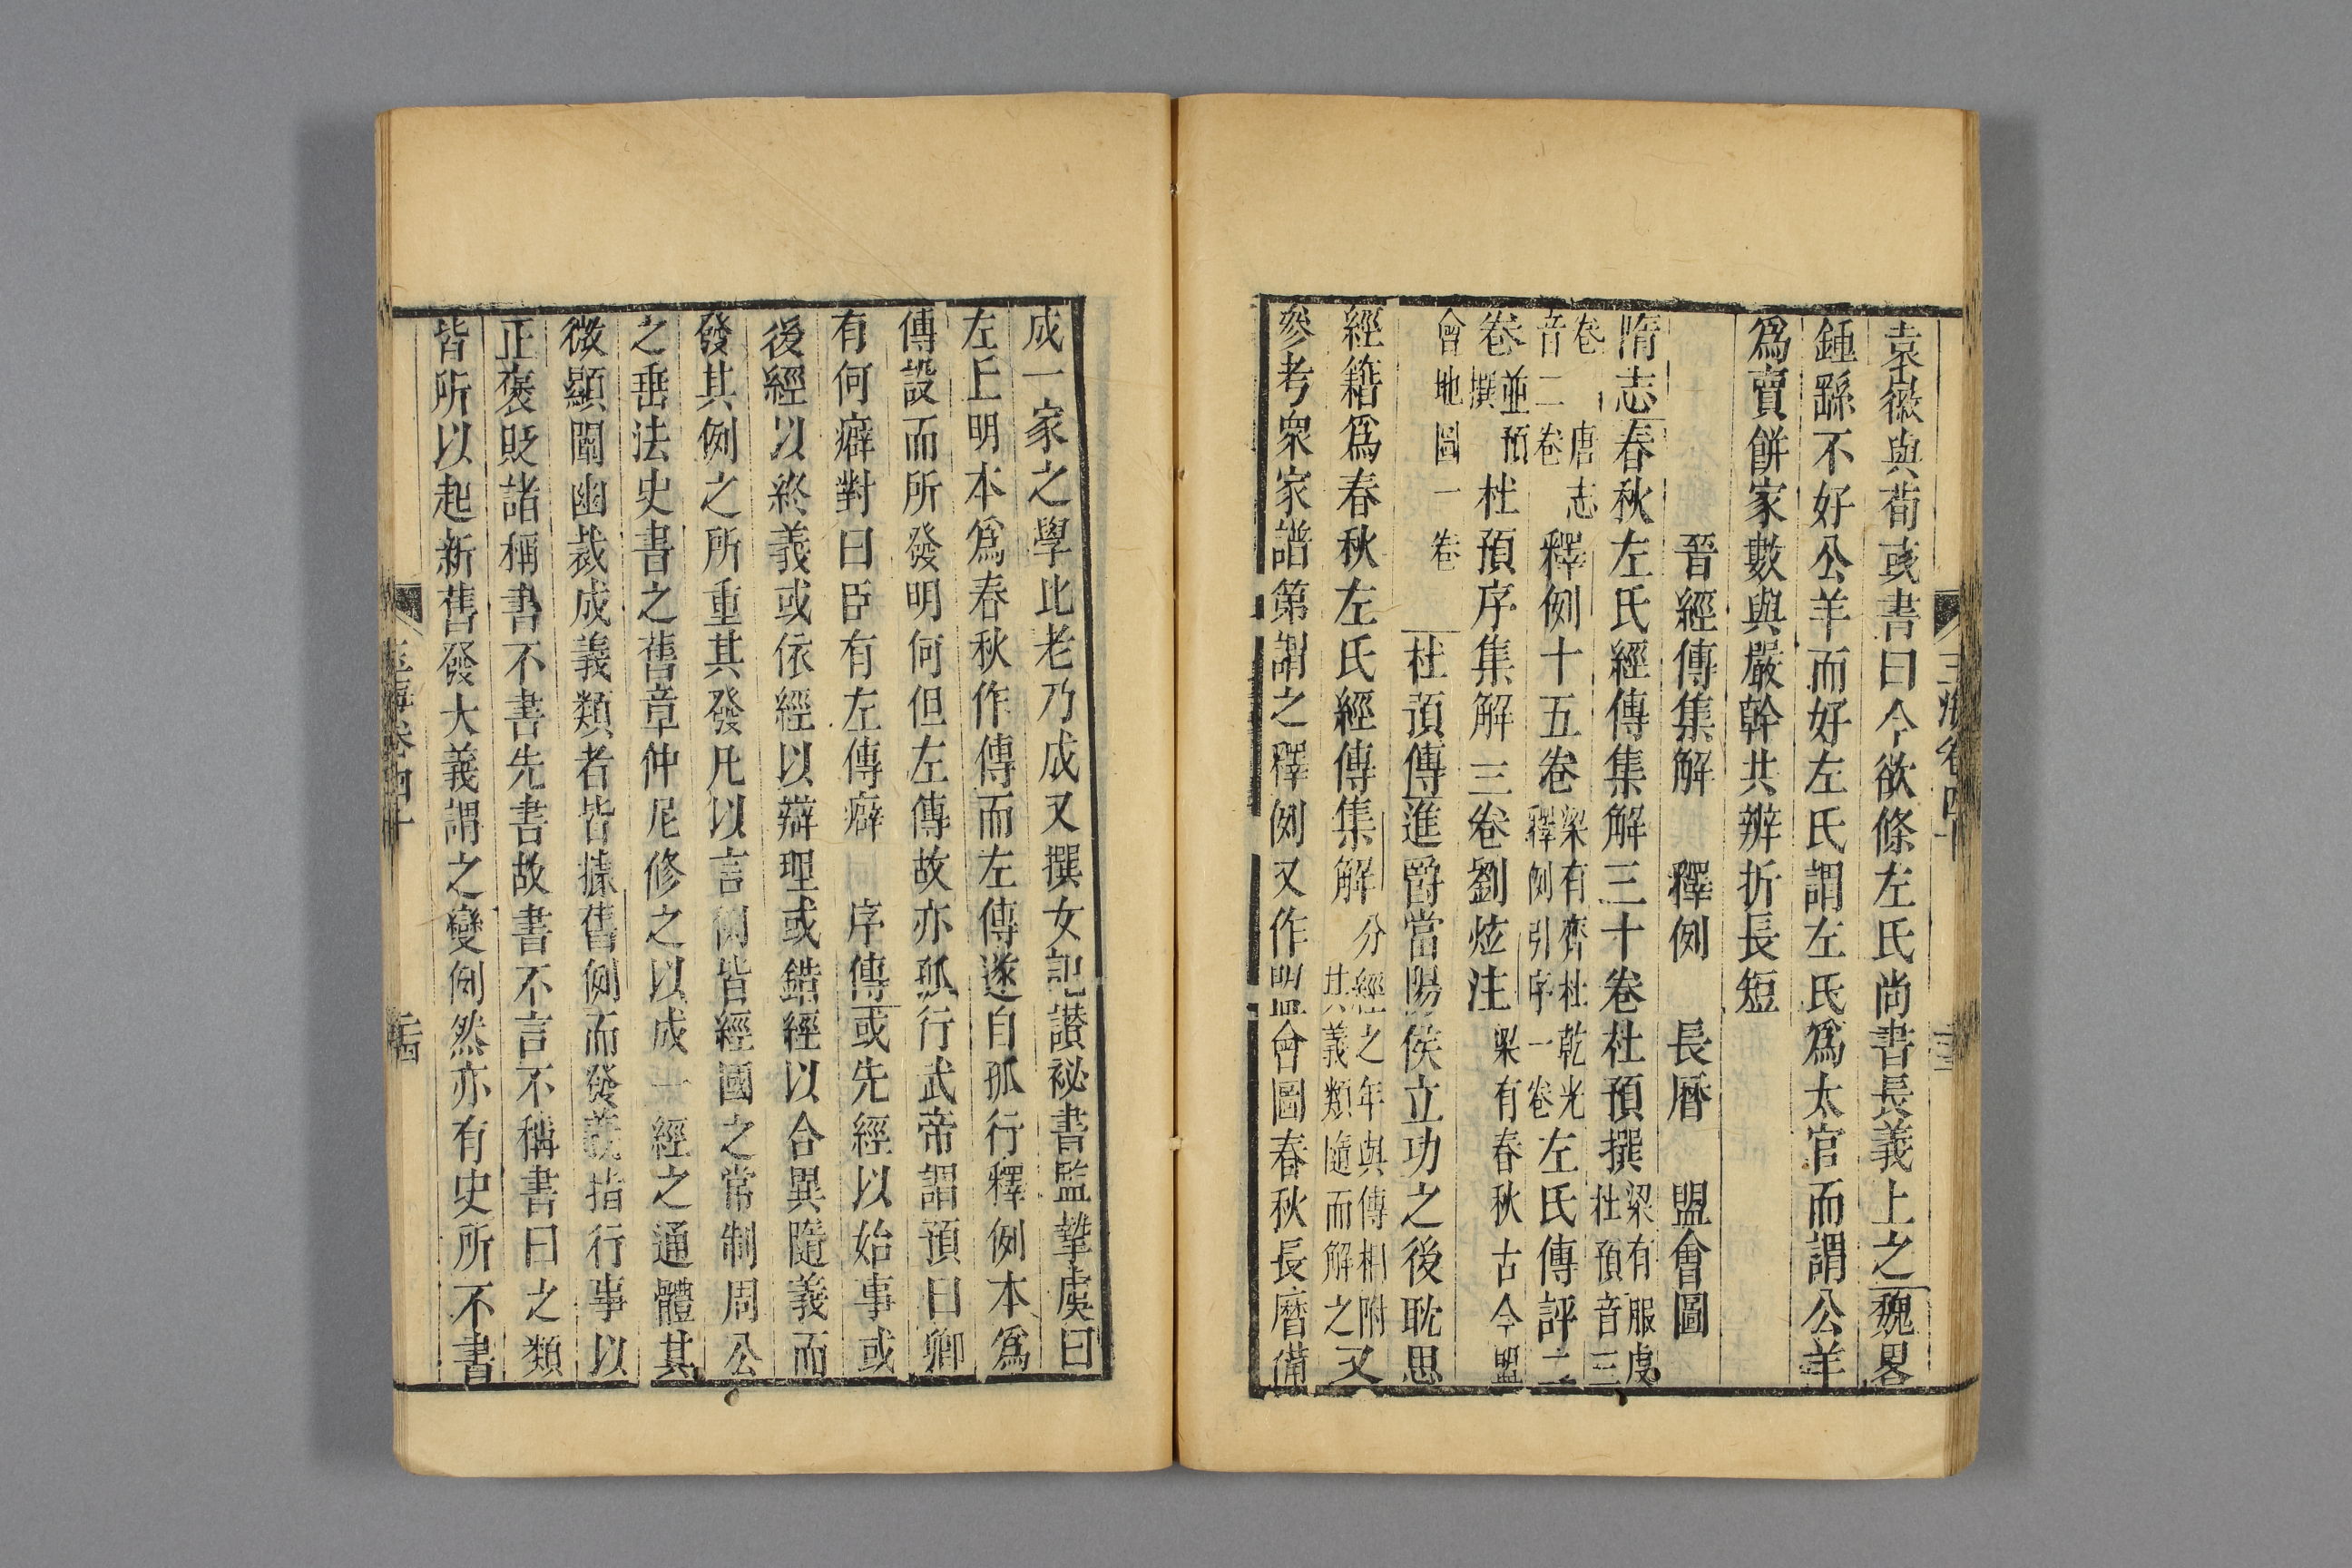 袁徽與荀彧書曰今欲條左氏尚書長義上之魏畧
鍾繇不好公羊而好左氏謂左氏爲太官而謂公羊
爲賣餅家數與嚴幹共辨折長短
晉經傳集解 釋例 長曆 盟會圖
隋志春秋左氏經傳集解三十卷杜預撰梁有服虔杜預音三
卷音二卷唐志釋例十五卷梁有齊杜乾光釋例引序一卷左氏傳評二
卷並預撰杜預序集解三卷劉炫注梁有春秋古今盟
會地圖一卷 杜預傳進爵當陽侯立功之後耽思
經籍爲春秋左氏經傳集解分經之年與傳相附其義類隨而解之又
參考衆家譜第謂之釋例又作盟會圖春秋長曆備
玉海卷四十
成一家之學比老乃成又撰女記讃祕書監摯虞曰
左丘明本爲春秋作傳而左傳遂自孤行釋例本爲
傳設而所發明何但左傳故亦孤行武帝謂預曰卿
有何癖對曰臣有左傳癖 序傳或先經以始事或
後經以終義或依經以辯理或錯經以合異隨義而
發其例之所重其發凡以言例皆經國之常制周公
之垂法史書之舊章仲尼修之以成一經之通體其
微顯闡幽裁成義類者皆據舊例而發義指行事以
正褒貶諸稱書不書先書故書不言不稱書曰之類
皆所以起新舊發大義謂之變例然亦有史所不書
玉海卷四十
二十四